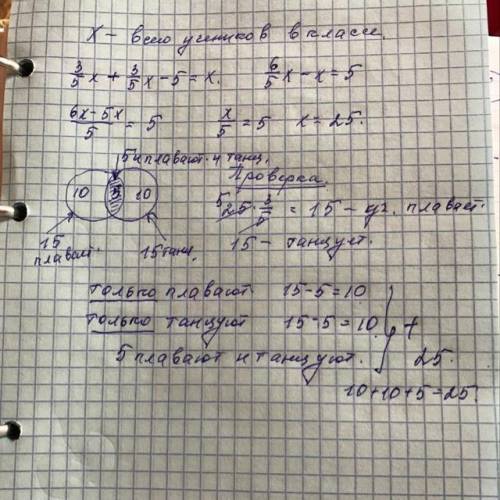 X – всего учеников в классе.
3/5 x + 3/5 x – 5 = x. 6/5 x – x = 5
6x – 5x / 5 = 5 x/5 = 5 x = 25.
5 и плавают и танц.
10 5 10
15 плавают. 15 танц.
Проверка.
5 25 · 3/5 = 15 – уч. плавает.
15 – танцует.
только плавают 15 – 5 = 10
только танцуют 15 – 5 = 10 +
5 плавают и танцуют. 25.
10 + 10 + 5 = 25.